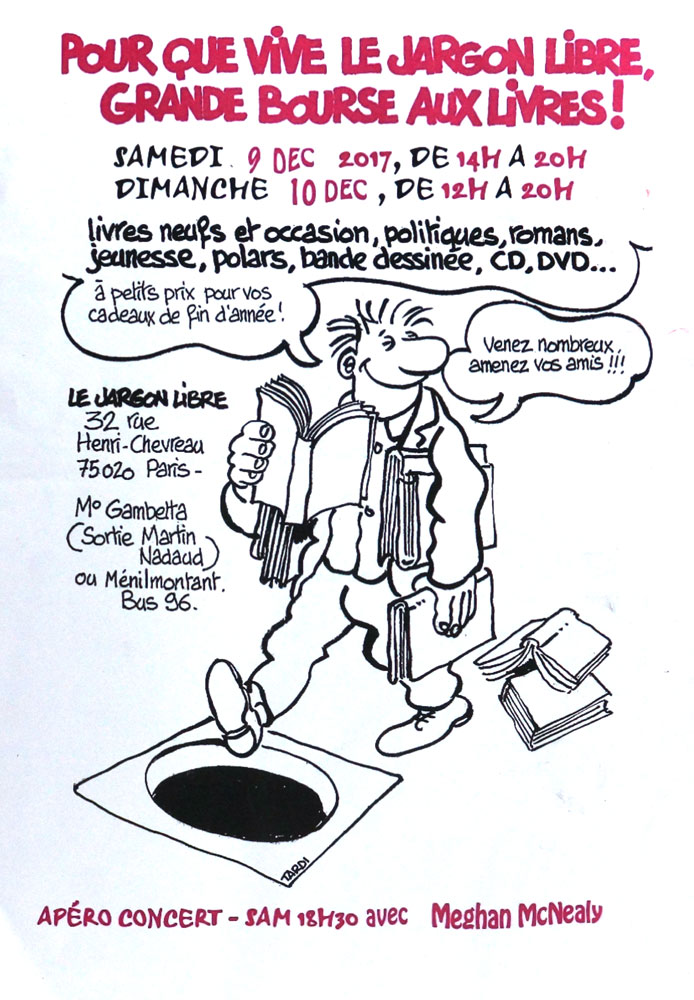 POUR QUE ViVE LE JARGON LiBRE,
GRANDE BOURSE AUX LiVRES!
SAMEDI . 9 DEC 2017, DE 14H A 20H
DIMANCHE 10 DEC , DE 12H A 20H
livres neufs et occasion, politiques, romans,
jeunesse, polars, bande dessinée, CD, DVD...
à petits prix pour vos
cadeaux de fin d'année!
Venez nombreux,
amenez vos amis !!!
LE JARGON LiBRE
32 rue
Henri-Chevreau
75020 Paris -
Mo Gambetta
(Sortie Martin
Nadaud)
ou Ménilmontant.
Bus 96.
TARDI
APÉRO CONCERT - SAM 18H30 avec Meghan McNealy